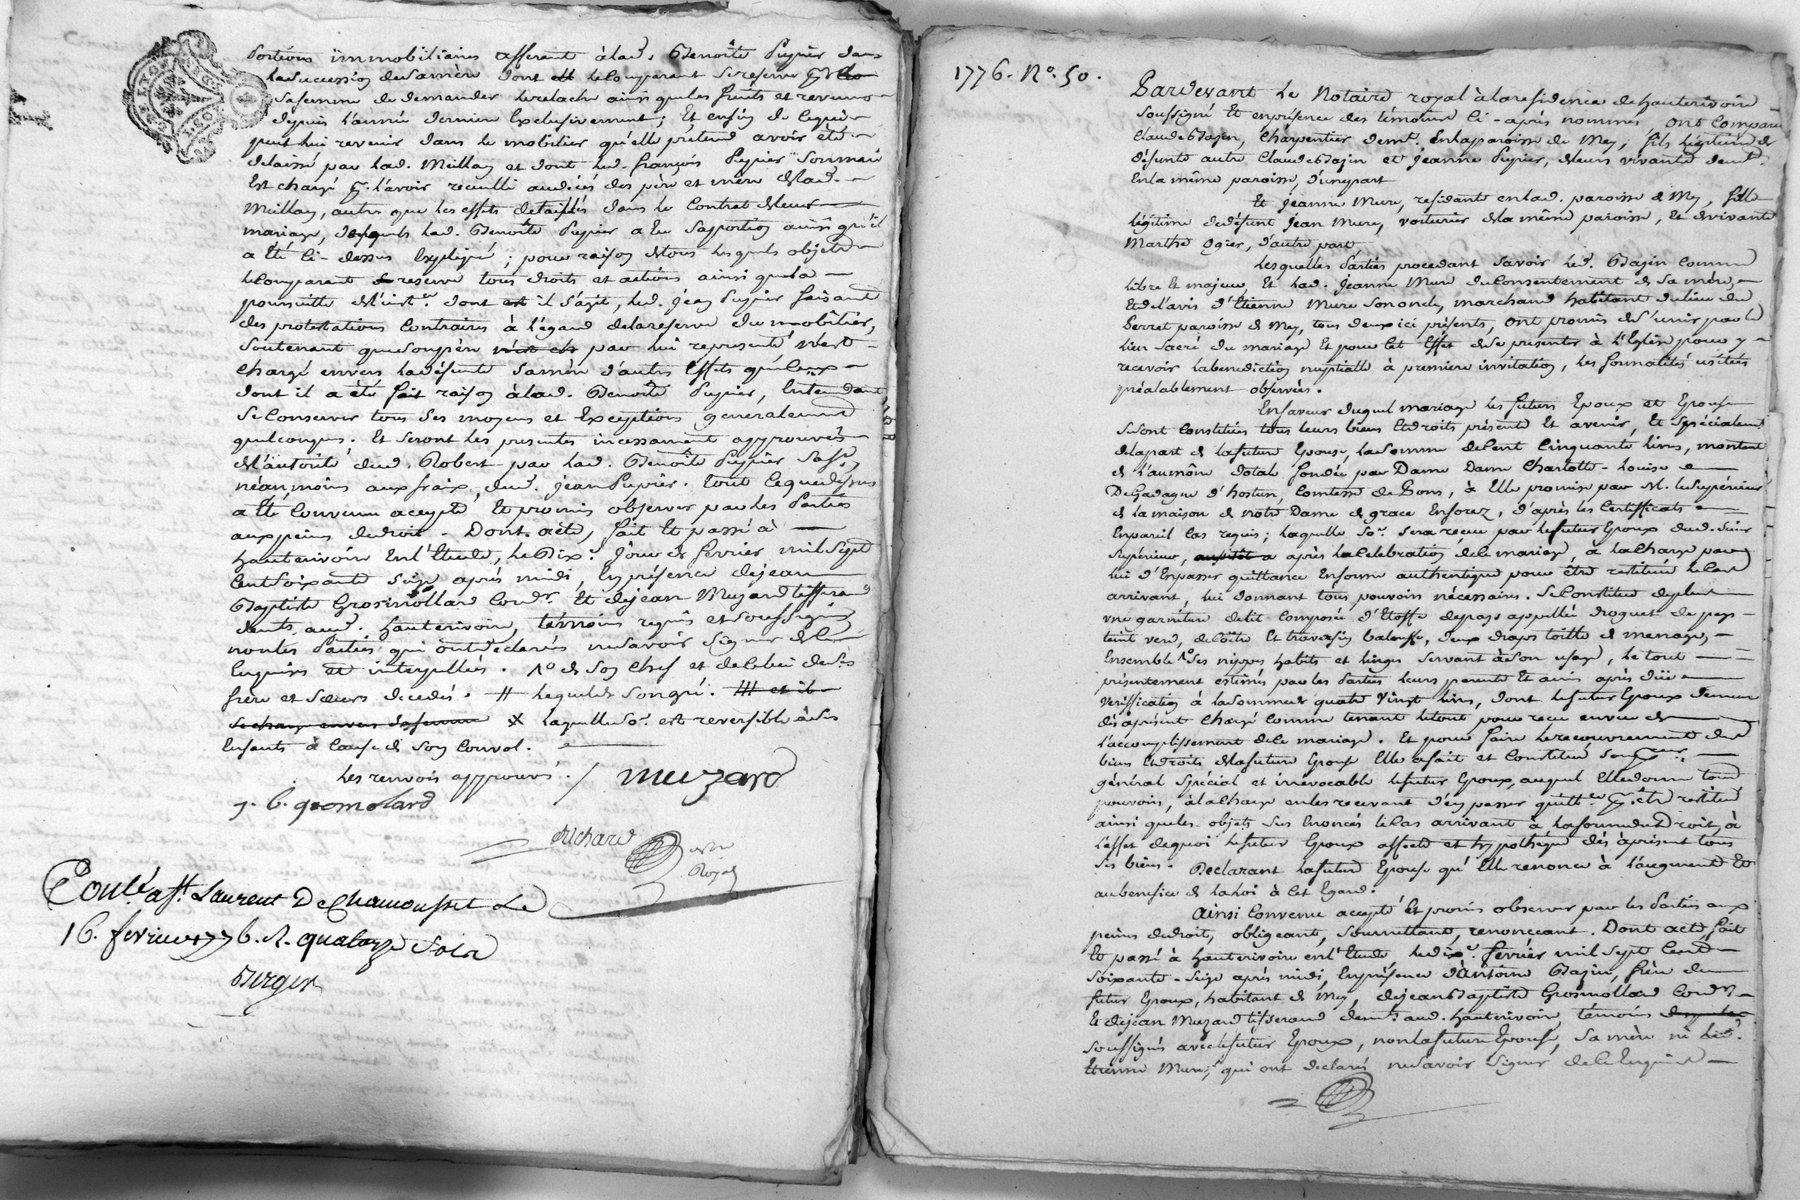 portions immobiliaires afferant à lad. Benoite Pupier dans
la succession de sa mère dont le comparant se reserve
sa femme de demander le relache ainsi que les fruits et revenus
depuis l'année derniere Exclusivement; Et enfin de ce qui
peut lui revenir dans le mobilier qu'elle prétend avoir été
delaissé par lad. Meillan et dont led. françois Pupier
Est chargé pr. l'avoir recuilli au décés des père et mère de lad.
Meillan, autre que les effets détaillés dans le Contrat de leur
mariage, desquels lad. Benoite Pupier a Eu sa portion ainsi qu'il
a été ci-dessus Expliqué; pour raison de tous lesquels objets
le comparant reserve tous droits et actions ainsi que la
poursuitte de l'inst.e dont il s'agit, led. jean Pupier faisant
des protestations contraires à l'égard de la reserve du mobilier,
soutenant que son père par lui representé n'est
chargé envers la défunte sa mère d'autres Effets que ceux
dont il a été fait raison à lad. Benoite Pupier, Entendant
se conserver tous ses moyens et Exceptions generalement
quelconques. Et seront les presentes incessament approuvées
de l'autorité dud. Robert par lad. Benoite Pupier
néanmoins aux fraix dud. jean Pupier. tout ce que dessus
a Eté convenu accepté Et promis observer par les Parties
aux peines de droit. Dont acte, fait Et passé à
hauterivoire En l'Etude, le Dix.e jour de fevrier mil sept
Cent soixante seize après midi, En présence de jean
Baptiste Grosmollard Cord.r Et de jean Muzard tisserand
dem.ts aud. hauterivoire, témoins requis et soussignés
non les Parties qui ont déclarés ne savoir signer de ce
Enquises et interpellées. 1o de son chef et de celui de ses
frère et sœurs decedés. # lequel de son gré. ### et il
se charge envers sa femme X laquelle so.e est reversible à ses
Enfants à cause de son convol.
les renvois approuvés. / Muzard
j. b. gromolard
Richard
Roy.
Conlé. à St. Laurent De Chamousset Le
16. fevrier 1776. R. quatorze sols
Burger
1776. No. 50.
Pardevant le Notaire royal à la residence de hauterivoire
soussigné Et en présence des témoins ci-après nommés, ont comparu
Claude Bazin, Charpentier demt. En la paroisse de Mey, fils légitime de
défunt autre Claude Bazin et jeanne Pupier, de leurs vivants demts.
En la même paroisse, d'une part
Et Jeanne Mure, residante en lad. paroisse de Mey, fille
légitime de défunt jean Mure, voiturier de la même paroisse, Et de vivante
Marthe Ogier, d'autre part
Lesquelles Parties procedant savoir led. Bazin comme
libre Et majeur, Et lad. jeanne Mure du consentement de sa mère,
Et de l'avis d'Etienne Mure son oncle, marchand habitant du lieu du
Perret paroisse de Mey, tous deux ici présents, ont promis de s'unir par le
lien sacré du mariage Et pour cet Effet de se presenter à l'Eglise pour y
recevoir la benediction nuptialle à premiere invitation, les formalités usitées
préalablement observées.
En faveur duquel mariage les futurs Epoux et Epouse
se sont constitués tous leurs biens Et droits présents Et avenir, Et spécialement
de la part de la future Epouse, la somme de Cent Cinquante livres, montant
de l'aumône dotale fondée par Dame Dame Charlotte-Louise
De Gadagne d'hostun, Comtesse de Pons, à Elle promise par M. le Supérieur
de la maison de notre Dame de grace En forez, d'après les Certifficats
En pareil cas requis; laquelle so.e sera reçue par le futur Epoux dud. sieur
Supérieur, aussitôt a après la Celebration de ce mariage, à la charge par
lui d'En passer quittance En forme authentique pour être restituée le cas
arrivant, lui donnant tous pouvoirs nécessaires. Se Constitue de plus
une garniture de lit Composée d'Etoffe de pays appellée droguet de pays
teint verd, de Coëte Et travasin baloufe, deux draps toille de menage,
Ensemble ses nippes habits et linges servant à son usage, le tout
présentement estimés par les Parties leurs parents Et amis après düe
vérification à la somme de quatre vingt livres, dont le futur Epoux demeure
dès àprésent chargé comme tenant le tout pour reçu envers
l'accomplissement de ce mariage. Et pour faire le recouvrement des
biens Et droits de la future Epouse Elle a fait et constitué son Pr.eur
général spécial et irrévocable le futur Epoux, auquel Elle donne tout
pouvoir, à la charge en les recevant d'en passer quitt.ce pr. être restitués
ainsi que les objets sus énoncés le cas arrivant à la forme du Droit, à
l'effet de quoi le futur Epoux affecte et hypotheque dès àprésent tous
ses biens. Declarant la future Epouse qu'Elle renonce à l'augment Et
au benefice de la loi à cet Egard.
Ainsi Convenu accepté Et promis observer par les Parties aux
peines de droit, obligeant, soumettant, renonceant. Dont acte, fait
Et passé à hauterivoire en l'Etude le dix.e fevrier mil sept Cent
soixante-seize après midi, En présence d'Antoine Bazin, frère du
futur Epoux, habitant de Mey, de jean Baptiste Grosmollard Cord.r
Et de jean Muzard tisserand demts. aud. hauterivoire, témoins
soussignés avec le futur Epoux, non la future Epouse, sa mère ni led.
Etienne Mure, qui ont declarés ne savoir signer de ce Enquis